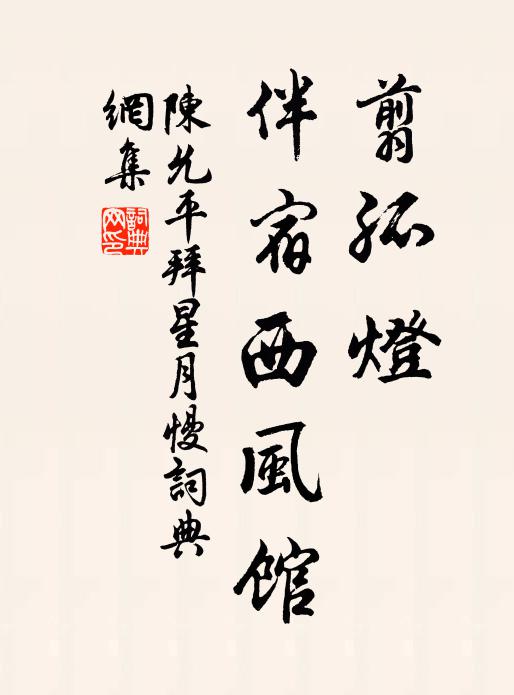 翦孤燈
伴宿西風館
陳允平拜星月慢詞典
網集
詞典
网印